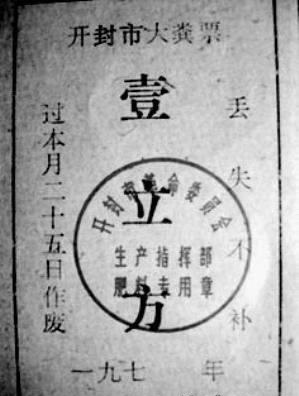 开封市大粪票
壹立方
丢失不补
过本月二十五日作废
开封市革命委员会
生产指挥部
肥料专用章
一九七 年